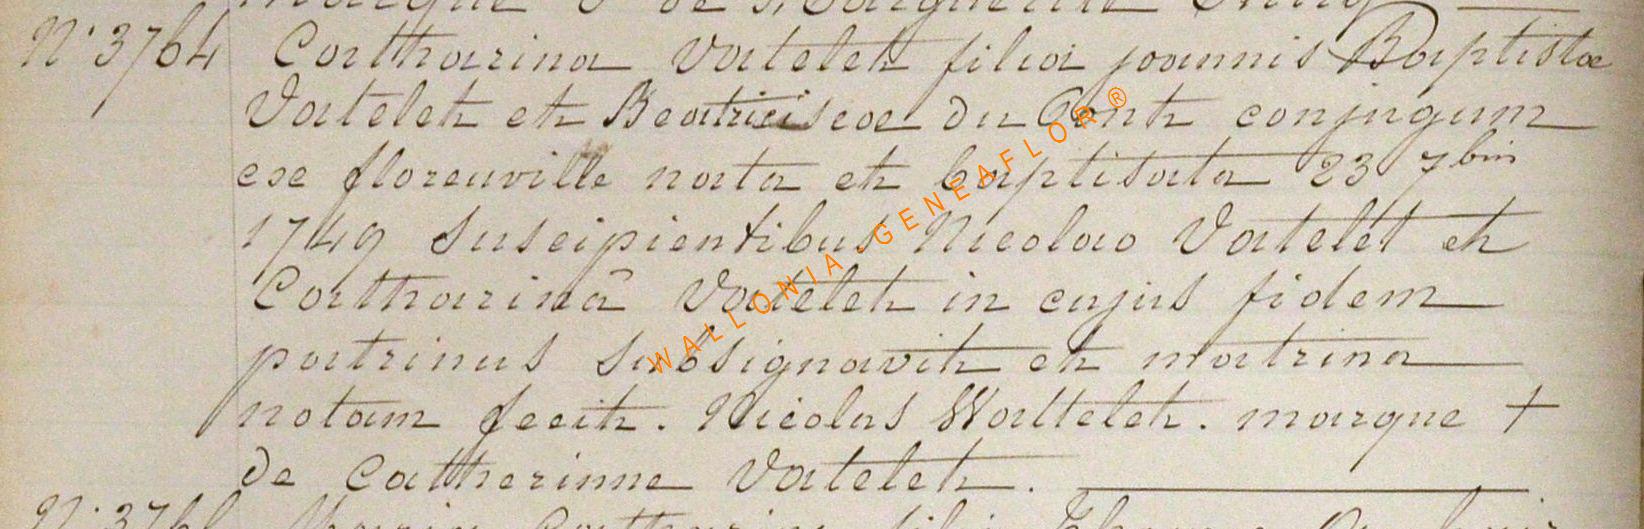 marque + de Marguerite
N° 3764 Catharina Vatelet filia joannis Baptistæ
Vatelet et Beatricis du Gent conjugum
ex florenville nata et baptisata 23 7bris
1749 suscipientibus Nicolao Vatelet et
Catharinâ Vatelet in cujus fidem
patrinus subsignavit et matrina
notam fecit. Nicolas Wattelet. marque +
de Catherinne Vatelet.
Maria Catharina filia
WALLONIA GENEAFLOR ®